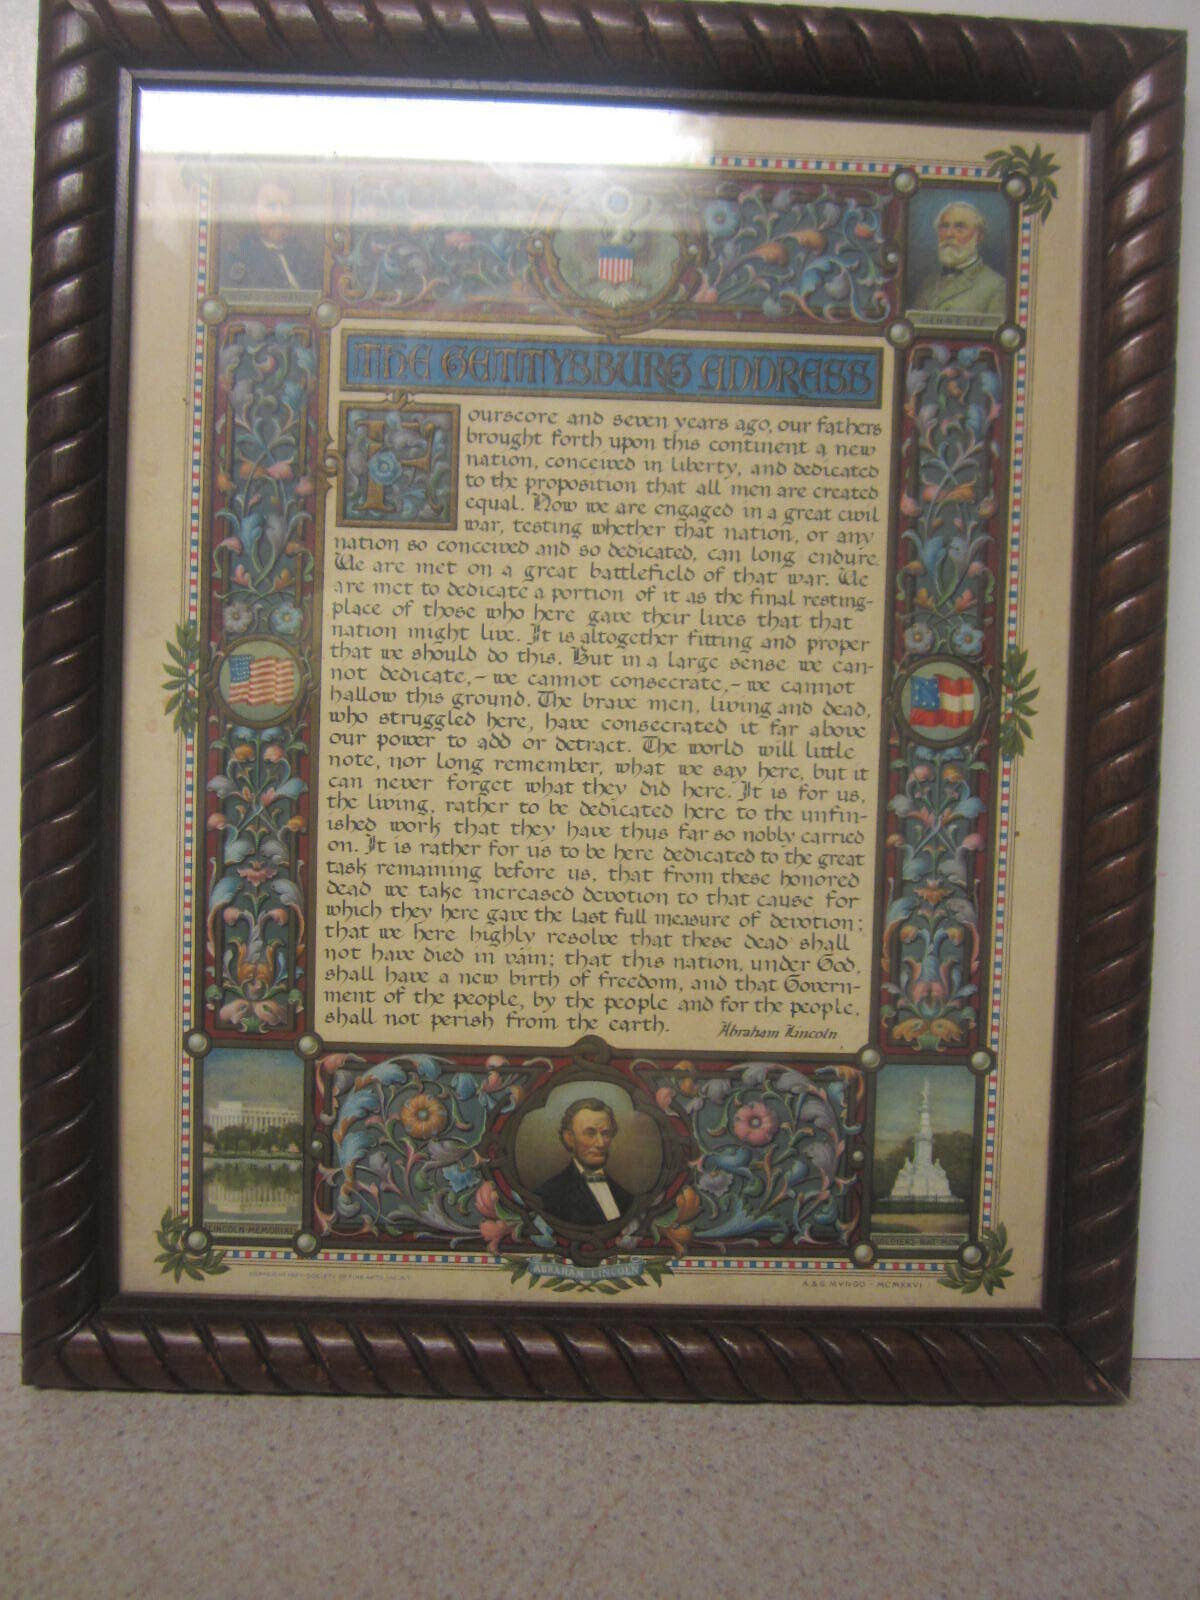 GEN. R. E. LEE
THE GETTYSBURG ADDRESS
Fourscore and seven years ago, our fathers
brought forth upon this continent a new
nation, conceived in liberty, and dedicated
to the proposition that all men are created
equal. Now we are engaged in a great civil
war, testing whether that nation, or any
nation so conceived and so dedicated, can long endure.
We are met on a great battlefield of that war. We
are met to dedicate a portion of it as the final resting-
place of those who here gave their lives that that
nation might live. It is altogether fitting and proper
that we should do this. But in a large sense we can-
not dedicate,- we cannot consecrate,- we cannot
hallow this ground. The brave men, living and dead,
who struggled here, have consecrated it far above
our power to add or detract. The world will little
note, nor long remember, what we say here, but it
can never forget what they did here. It is for us,
the living, rather to be dedicated here to the unfin-
ished work that they have thus far so nobly carried
on. It is rather for us to be here dedicated to the great
task remaining before us, that from these honored
dead we take increased devotion to that cause for
which they here gave the last full measure of devotion;
that we here highly resolve that these dead shall
not have died in vain; that this nation, under God,
shall have a new birth of freedom, and that Govern-
ment of the people, by the people and for the people,
shall not perish from the earth.
Abraham Lincoln
LINCOLN MEMORIAL
SOLDIERS NAT. MON.
ABRAHAM LINCOLN
SOCIETY OF FINE ARTS, INC.
A. & G. MVNGO - MCMXXVI